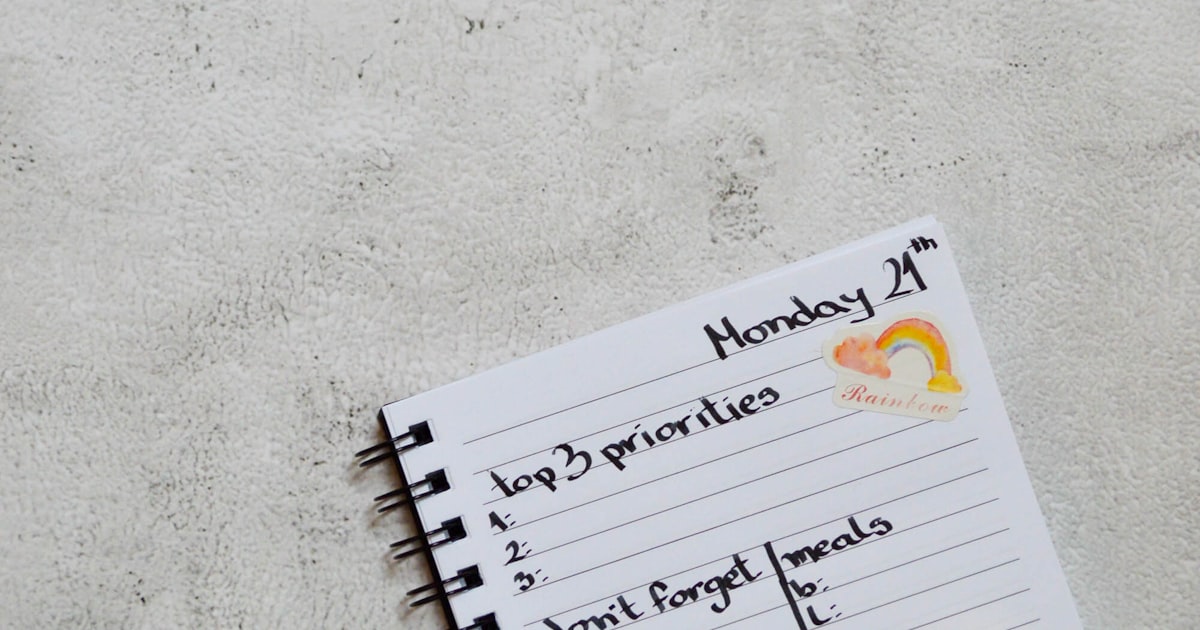 Monday 21th
Rainbow
top 3 priorities
1:
2:
3:
don't forget
meals
b:
L: